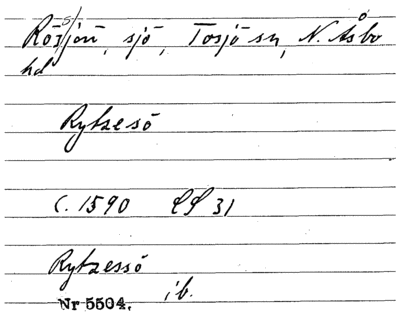 Rössjön, sjö, Tosjö sn, N. Åsbo
hd
Rytzesö
c. 1590 LS 31
Rytzessö
ib.
Nr 5504.